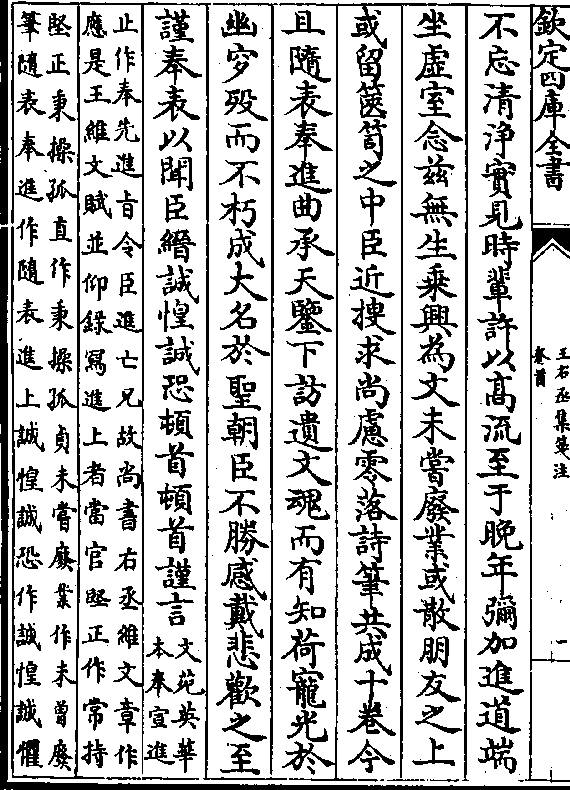 欽定四庫全書
王右丞集箋注
卷首
一
不忘清淨實見時輩許以髙流至于晚年彌加進道端
坐虛室念兹無生乘興為文未嘗廢業或散朋友之上
或留篋笥之中臣近搜求尚慮零落詩筆共成十卷今
且隨表奉進曲承天鑒下訪遺文魂而有知荷寵光於
幽穸殁而不朽成大名於聖朝臣不勝感戴悲歡之至
謹奉表以聞臣縉誠惶誠恐頓首頓首謹言文苑英華
本奉宣進
止作奉先進旨令臣進亡兄故尚書右丞維文章作
應是王維文賦並仰錄寫進上者當官堅正作常持
堅正秉操孤直作秉操孤貞未嘗廢業作未曽廢
筆隨表奉進作隨表進上誠惶誠恐作誠惶誠懼